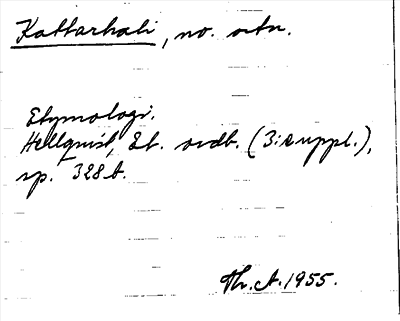 Kattarhali, no. ortn.
Etymologi.
Hellquist, Et. ordb. (3:e uppl.),
sp. 328 b.
Th. A. 1955.